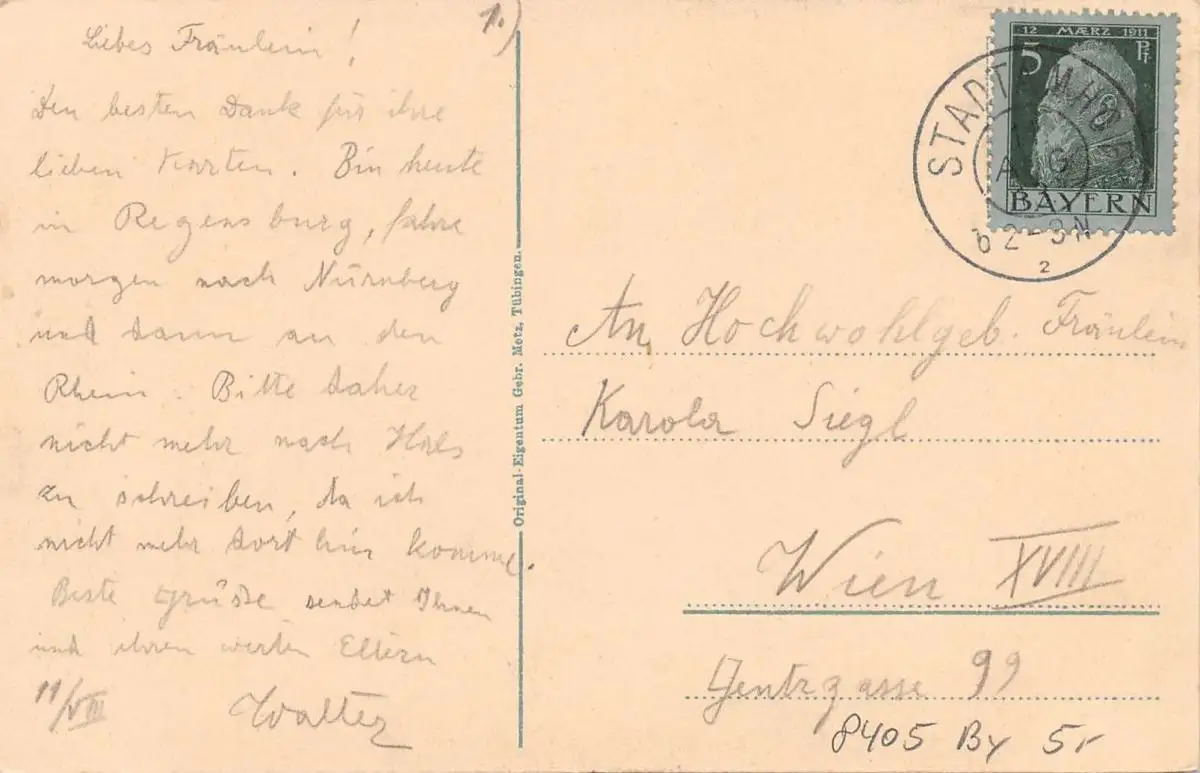 1.)
Liebes Fräulein!
Den besten Dank für ihre
lieben Karten. Bin heute
in Regensburg, fahre
morgen nach Nürnberg
und dann an den
Rhein. Bitte daher
nicht mehr nach Hals
zu schreiben, da ich
nicht mehr dort hin komme.
Beste Grüße sendet Ihnen
und ihren werten Eltern
11/VIII Walter
Original-Eigentum Gebr. Metz, Tübingen.
12 MÆRZ 1911
5 Pf.
BAYERN
STADTAMHOF
AUG
6 2-3N
2
An Hochwohlgeb. Fräulein
Karola Siegl
Wien XVIII
Gentzgasse 99
8405 By 5r